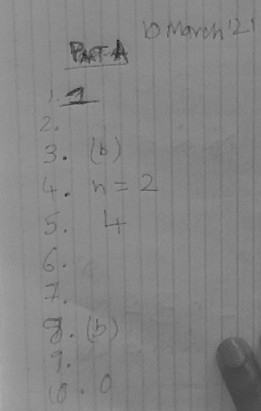 10 March '21
PART-A
1. 1
2.
3. (b)
4. n = 2
5. 4
6.
7.
8. (b)
9.
10. 0